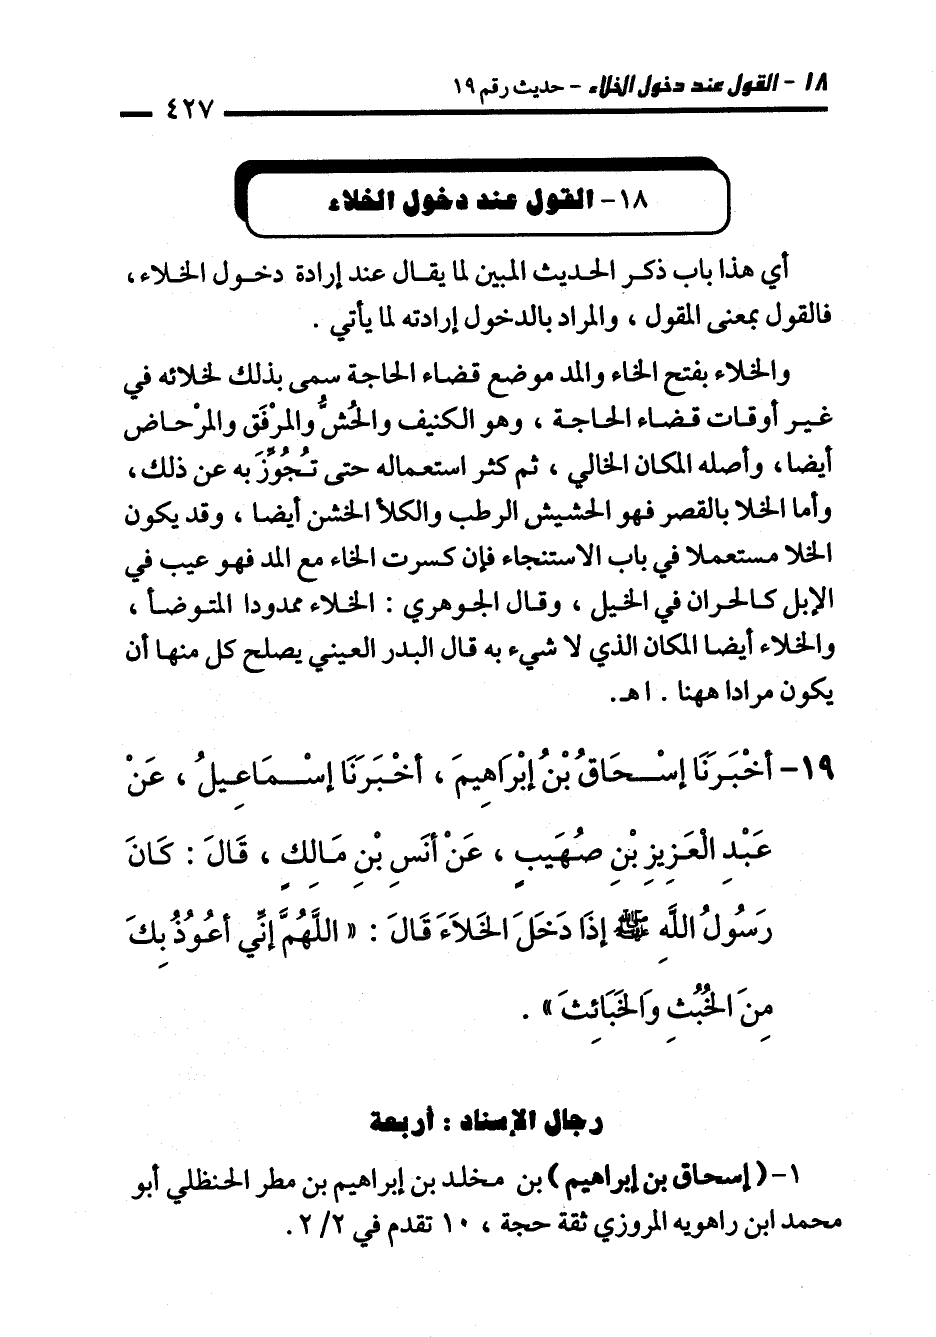 ١٨ - القول عند دخول الخلاء - حديث رقم ١٩
٤٢٧
١٨- القول عند دخول الخلاء
أي هذا باب ذكر الحديث المبين لما يقال عند إرادة دخول الخلاء ،
فالقول بمعنى المقول ، والمراد بالدخول إرادته لما يأتي .
والخلاء بفتح الخاء والمد موضع قضاء الحاجة سمى بذلك لخلائه في
غير أوقات قضاء الحاجة ، وهو الكنيف والحُشُّ والمرْفَق والمرْحاض
أيضا ، وأصله المكان الخالي ، ثم كثر استعماله حتى تُجُوِّزَ به عن ذلك ،
وأما الخلا بالقصر فهو الحشيش الرطب والكلأ الخشن أيضا ، وقد يكون
الخلا مستعملا في باب الاستنجاء فإن كسرت الخاء مع المد فهو عيب في
الإبل كالحران في الخيل ، وقال الجوهري : الخلاء ممدودا المتوضأ ،
والخلاء أيضا المكان الذي لا شيء به قال البدر العيني يصلح كل منها أن
يكون مرادا ههنا . اهـ.
١٩- أخْبَرَنَا إسْحَاقُ بْنُ إبْرَاهِيمَ ، أخْبَرَنَا إسْمَاعِيلُ ، عَنْ
عَبْدِ الْعَزِيزِ بْنِ صُهَيْبٍ ، عَنْ أنَسِ بْنِ مَالِكٍ ، قَالَ : كَانَ
رَسُولُ اللَّهِ ﷺ إذَا دَخَلَ الخَلاَءَ قَالَ : « اللَّهُمَّ إنِّي أعُوذُ بِكَ
مِنَ الخُبُثِ وَالخَبَائِثَ » .
رجال الإسناد : أربعة
١- ( إسحاق بن إبراهيم ) بن مخلد بن إبراهيم بن مطر الحنظلي أبو
محمد ابن راهويه المروزي ثقة حجة ، ١٠ تقدم في ٢/ ٢ .